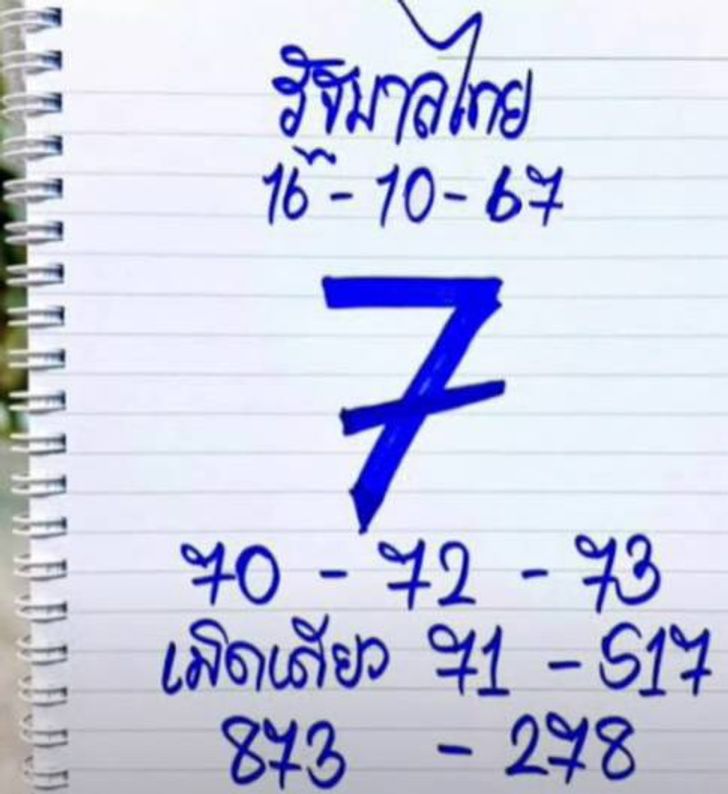 รัฐบาลไทย
16 - 10 - 67
7
70 - 72 - 73
เม็ดเดียว 71 - 517
873 - 278